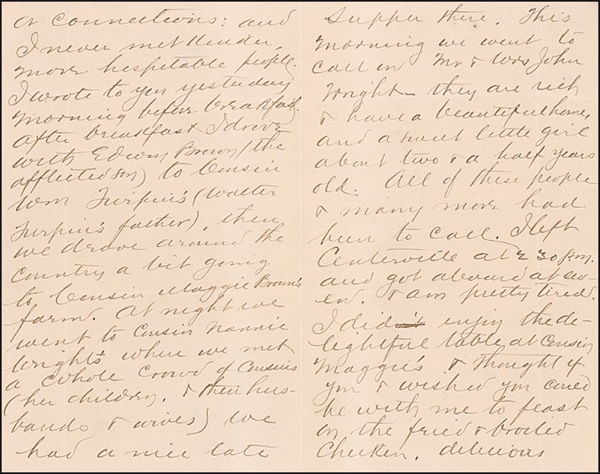 or connections; and
I never met kinder,
more hospitable people.
I wrote to you yesterday
morning before breakfast.
After breakfast I drove
with Edwin Brown (the
afflicted son) to Cousin
Wm Turpin's (Walter
Turpin's father), then
we drove around the
country a bit going
to Cousin Maggie Brown's
farm. At night we
went to Cousin Nannie
Wright's where we met
a whole crowd of Cousins
(her children, & their hus-
bands & wives) We
had a nice late
supper there. This
morning we went to
call on Mr & Mrs John
Wright – they are rich
& have a beautiful home
and a sweet little girl
about two & a half years
old. All of these people
& many more had
been to call. I left
Centerville at 2 30 p.m.
and got aboard at
& am pretty tired.
I did enjoy the de-
lightful table at Cousin
Maggie's & thought of
you & wished you could
be with me to feast
on the fried & broiled
Chicken, delicious